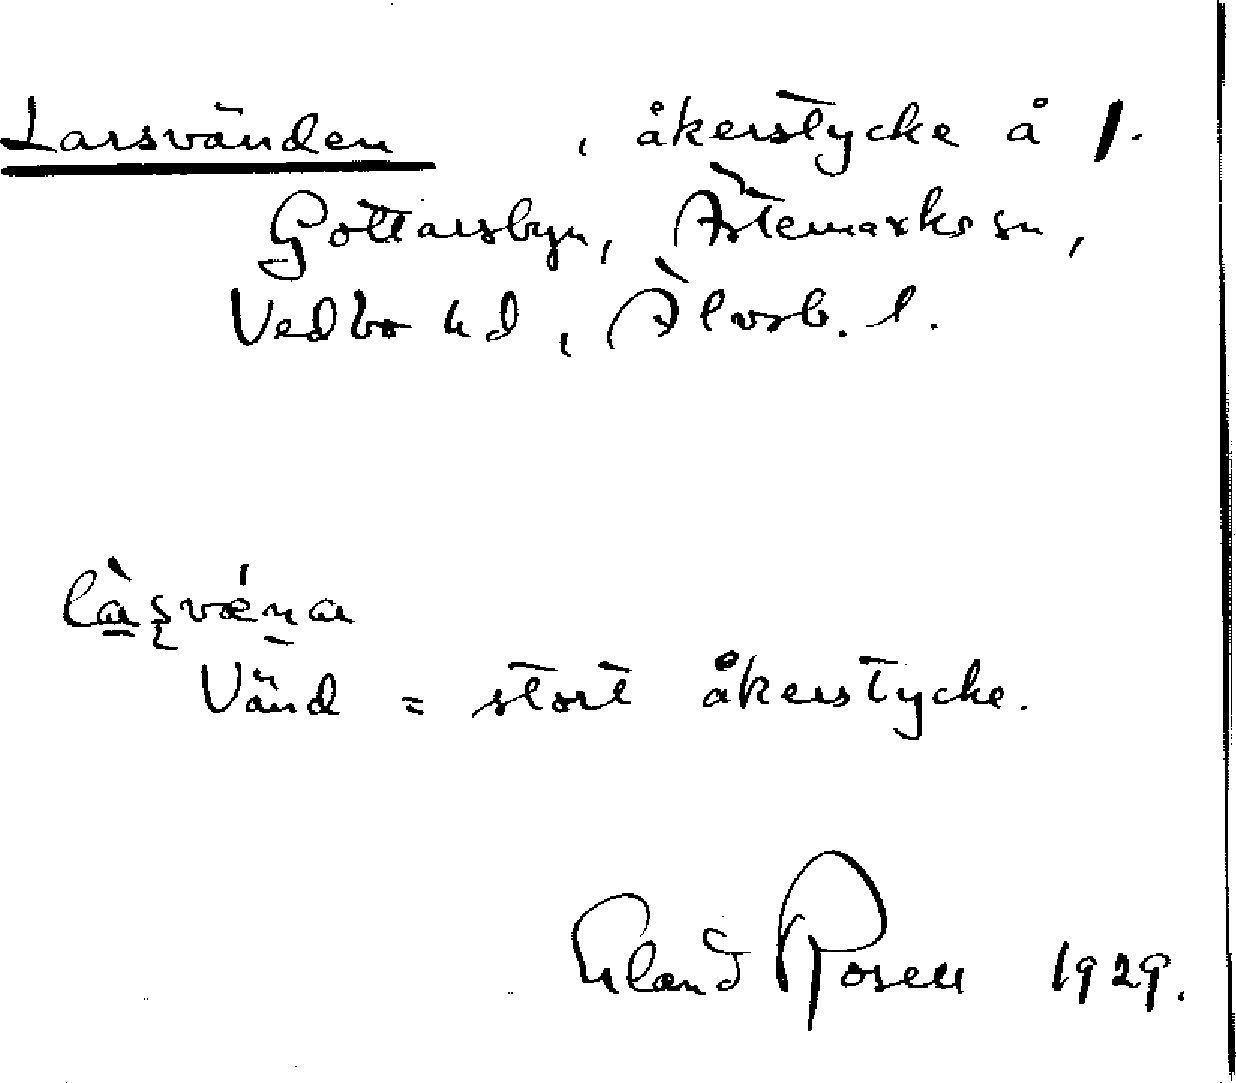 Larsvänden, åkerstycke å 1.
Gottarsbyn, Ärtemarks sn,
Vedbo hd, Älvsb. l.
Vänd = stort åkerstycke.
Erland Rosell 1929.